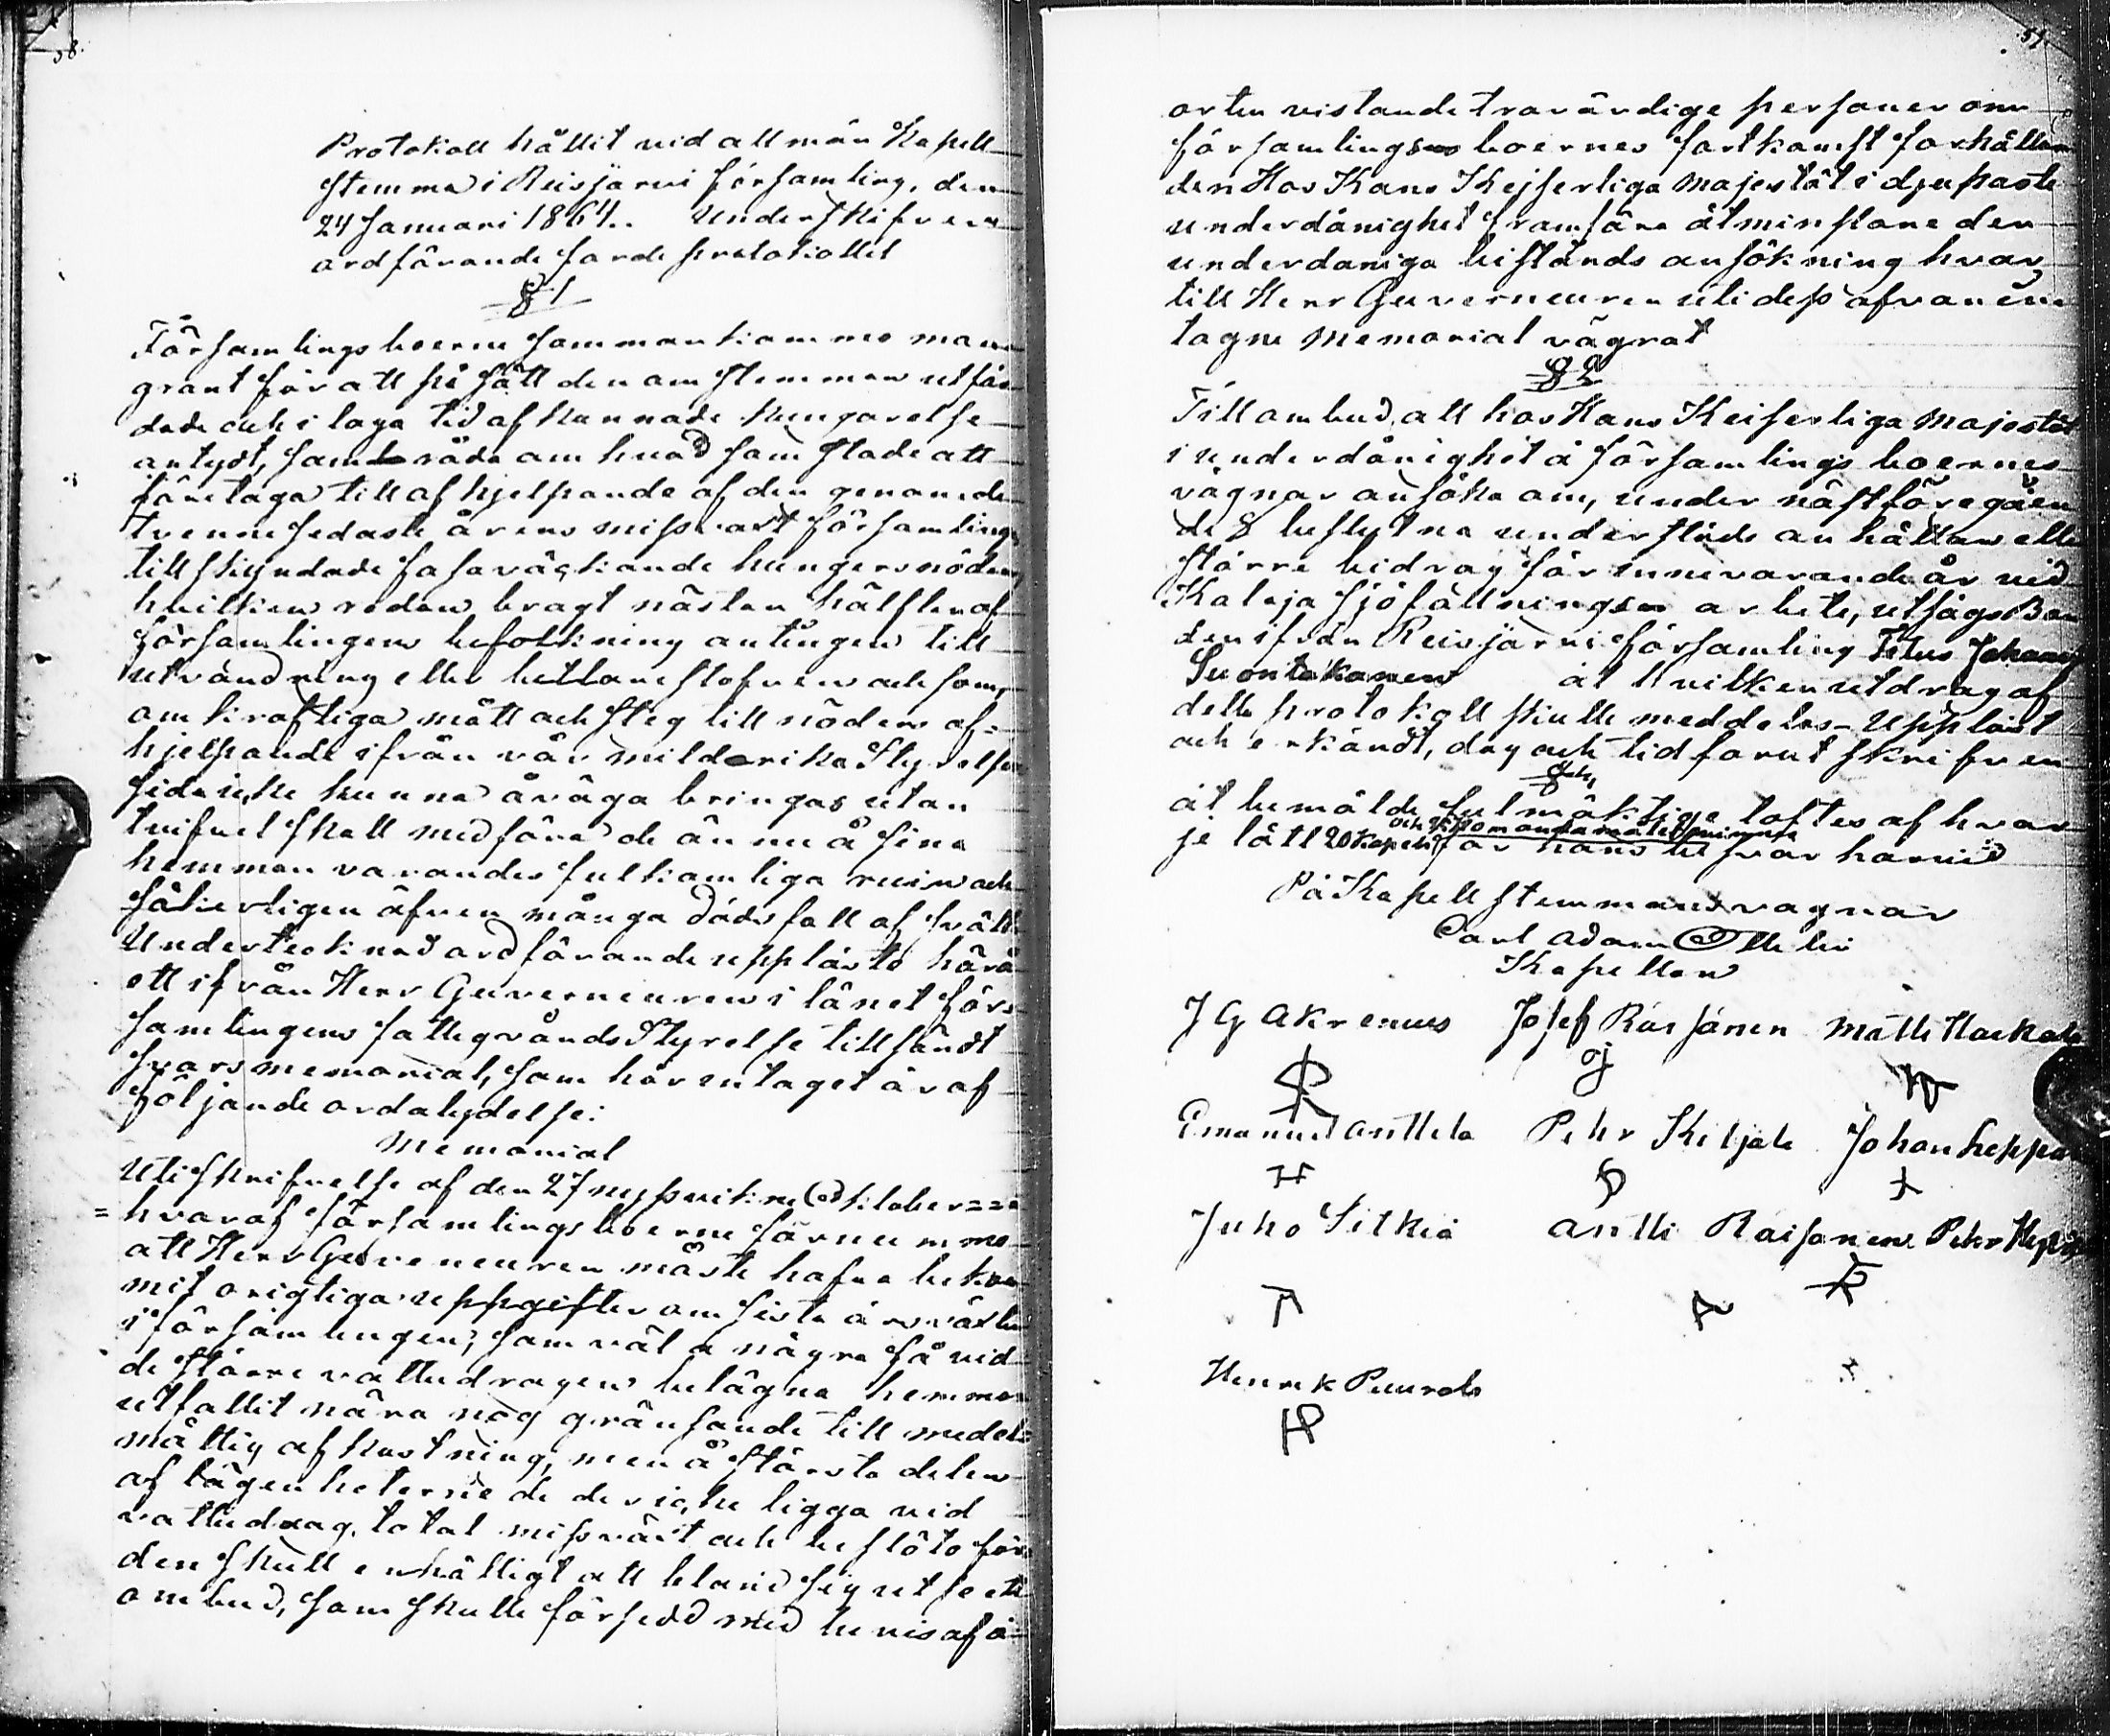 58.
Protokoll hållit vid allmän Kapell
stemma i Reisjärvi församling, den
24 Januari 1864.. Underskifven
ordförandeförde protokollet
§ 1
Församlingsboerne sammankommo man
grant för att på sätt den om stemman utfär
dade och i laga tid afkunnade kungörelse
antydt, samråda om hvad som stode att
företaga till afhjelpande af den genom de
trenne sedaste årens missvext församlings
tillskyndade fasaväckande hungersnöden
hvilken redan bragt nästan hälften af
församlingens befolkning antingen till
utvandring eller bettlarestafven och som,
om kraftiga mått och steg till nödens af-
hjelpande ifrån vår mildarika Styrelses
sida icke kunna åväga bringas utan
tvifvel skall medföra de ännu å sina
hemman varandes fulkomliga ruin och
säkerligen äfven många dödsfall af svält.
Undertecknad ordförande upplärste härå
ett ifrån Herr Guverneuren i länet förs
samlingens fattigvårds Styrelse tillsändt
svars memorial, som här entaget är af
följande ordalydelse:
Memorial
Uti skrifvelse af den 27 nyssvikne October ===
= hvaraf församlingsboerne förnummo
att Herr Guveneuren måste hafva bekom
mit origtiga uppgifter om sista årsväxten
i församlingen, som väl å några få vid
de större vattudragen belägna hemman
utfallit nära nog gränsande till medel=
måttig afkastning, men å största delen
af lägenheterne de der icke ligga vid
vattudrag, total missväxt och beslöto för
den skull enhälligt att bland sig utse ett
ombud, som skulle försedd med bevis af å
51.
orten vistande trovärdige personer om
församlings boernes fortkomst forhållan
den Hos Hans Kejserliga Majestät i djupaste
underdånighet framföra åtminstone den
underdaniga bistånds ansökning hvar
till Herr Guverneuren uti dess ofvan in
tagne Memorial vägrat
§ 2
Till ombud, att hos Hans Keiserliga Majestät
i underdånighet å församlings boernes
vägnar ansöka om, under nästföregåen
de § beslutna understöds anhållan eller
större bidrag för innevarande år vid
Kalaja sjöfällningsen arbete, utsågs Bon
den ifrån Reisjärvi församling Titus Johan
Suontakanen åt Hvilken utdrag af
detta protokoll skulle meddelas - Uppläst
och erkändt, dag och tid förut skrifven
§
åt bemälde fulmäktige loftes af hvar
je lått 20 Kopek för hans besvär härvid
På Kapell stemmans vagnar
Carl Adam
Kapellan
J G Akrenius Josef Räisänen Matti
Emanuel Anttila Pehr Kiljala Johan Leppä
Juho Sitkiä Antti Räisänen Pehr
Henrik Puurola
HP